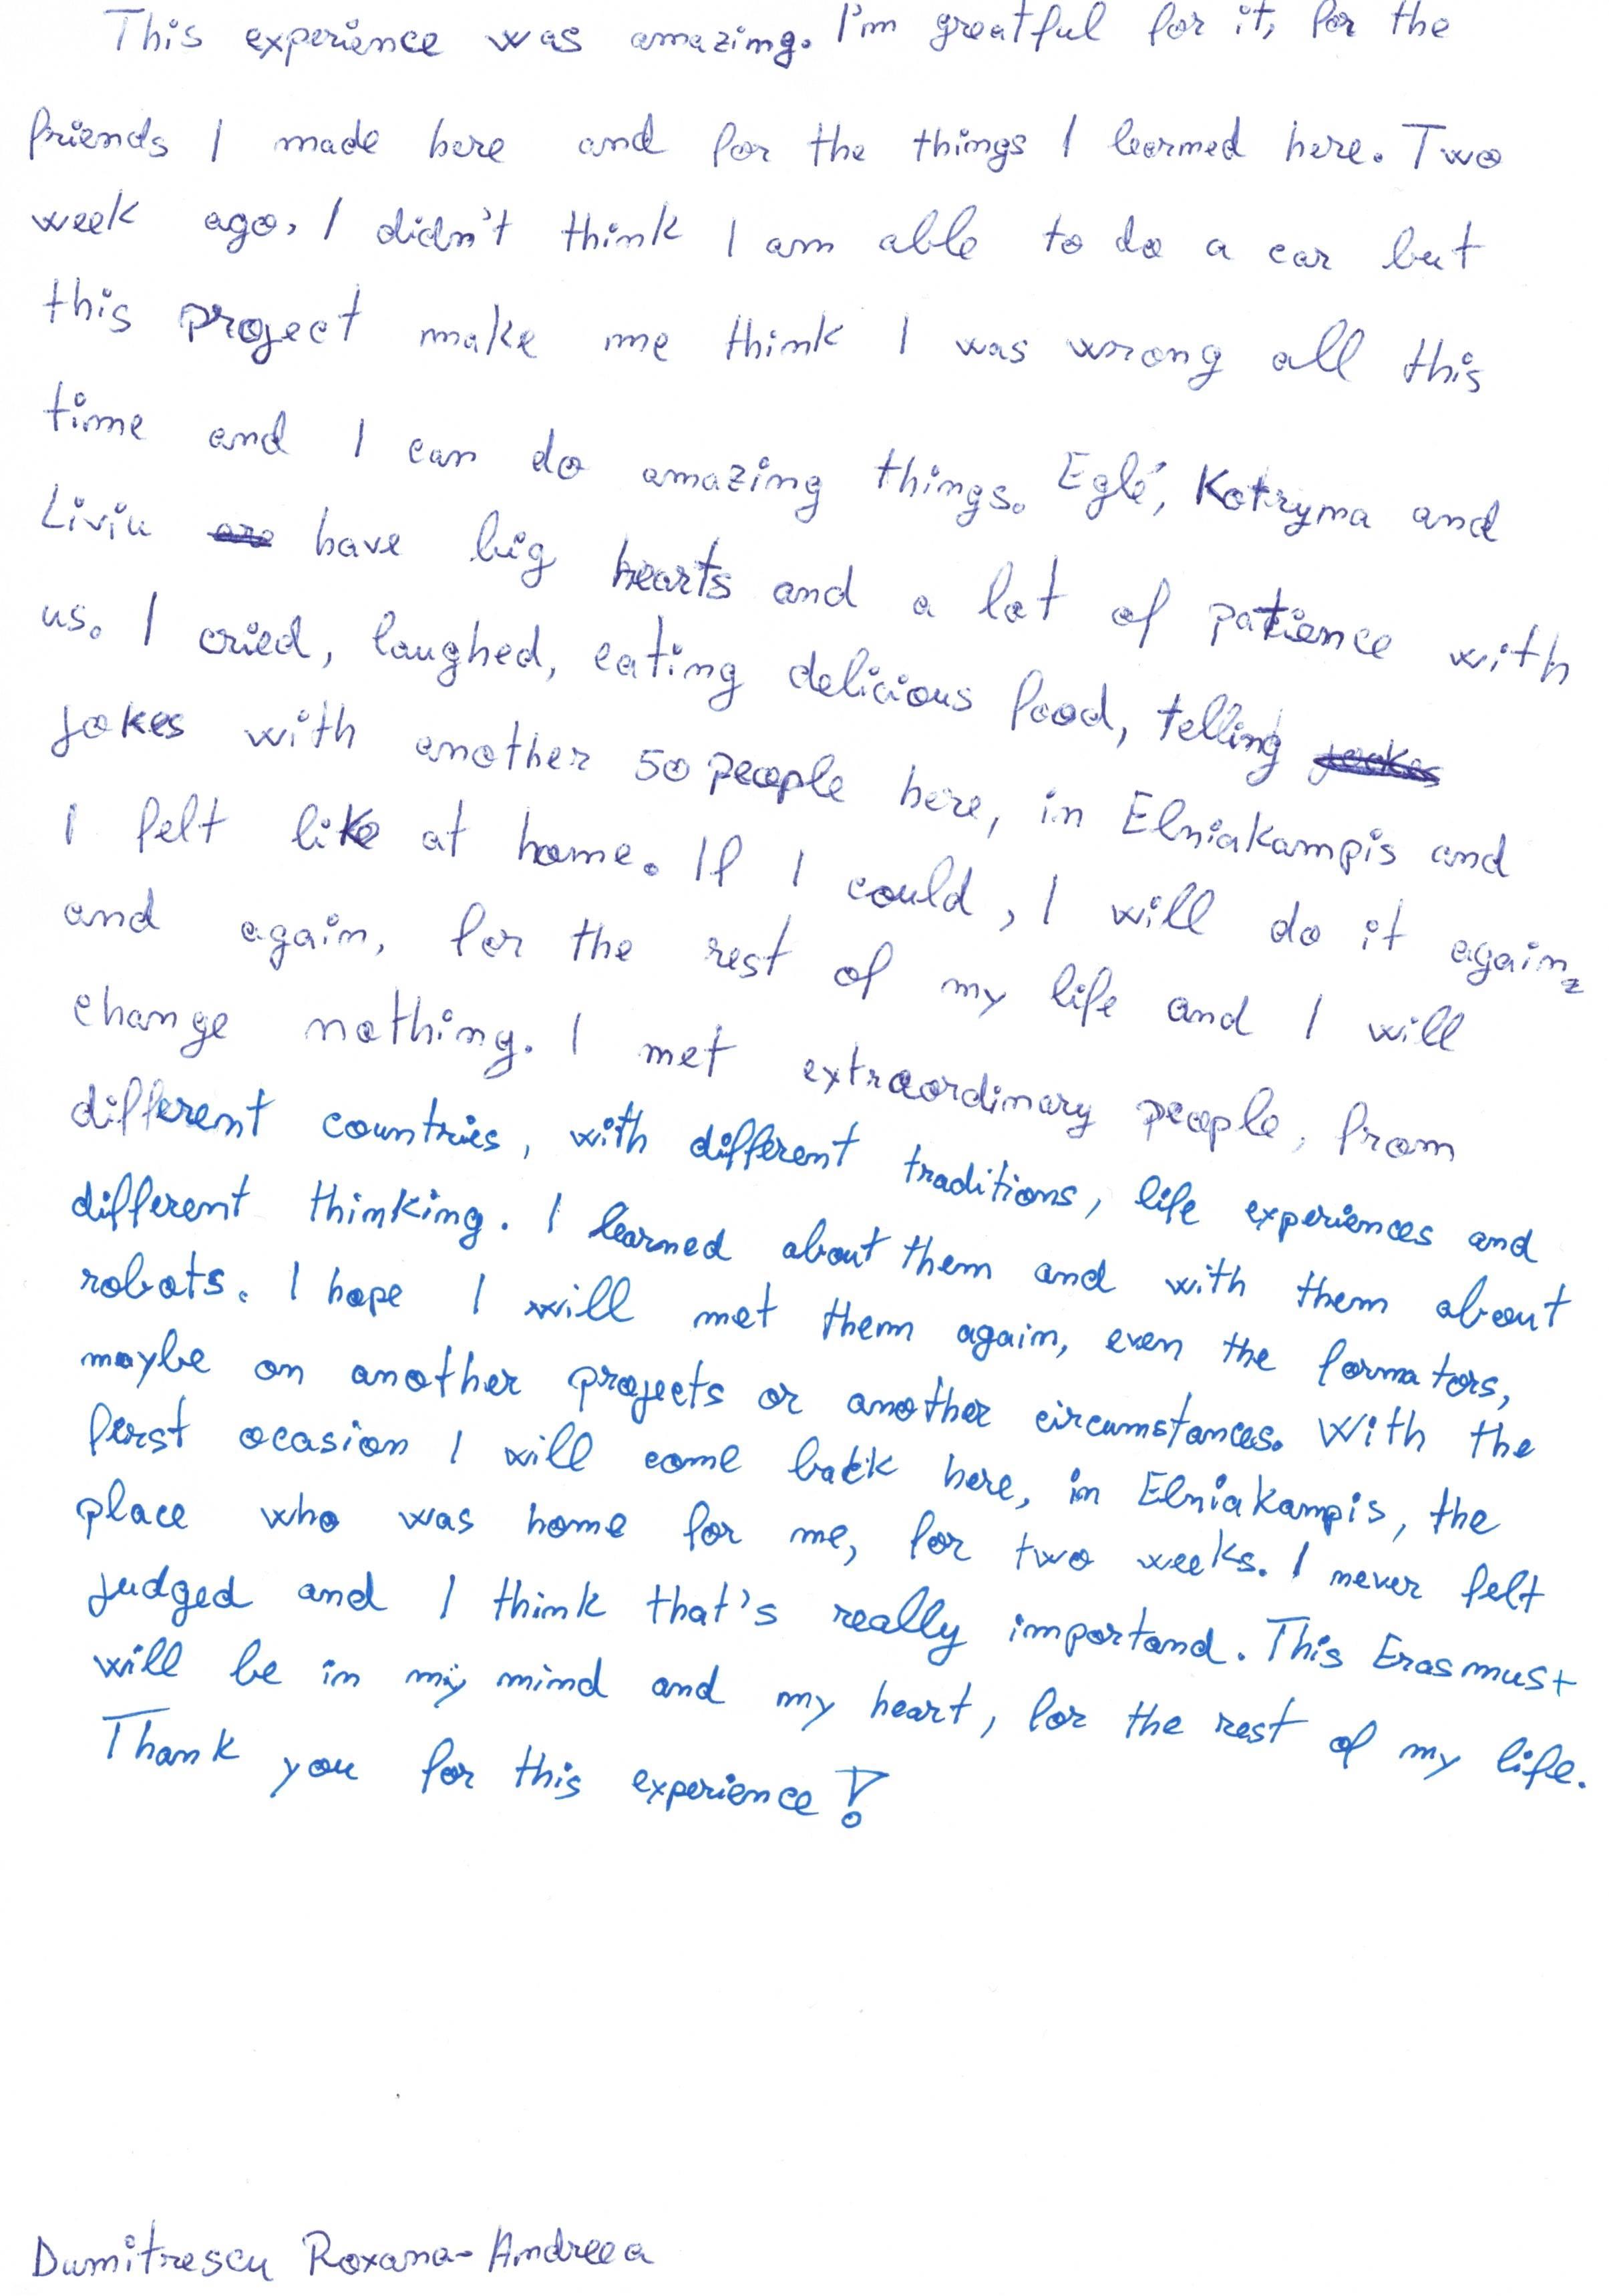 This experience was amazing. I'm greatful for it, for the
friends I made here and for the things I learned here. Two
week ago, I didn't think I am able to do a car but
this project make me think I was wrong all this
time and I can do amazing things. Eglé, Kotryna and
Liviu are have big hearts and a lot of patience with
us. I cried, laughed, eating delicious food, telling jookes
jokes with another 50 people here, in Elniakampis and
I felt like at home. If I could, I will do it again,
and again, for the rest of my life and I will
change nothing. I met extraordinary people, from
different countries, with different traditions, life experiences and
different thinking. I learned about them and with them about
robots. I hope I will met them again, even the formators,
maybe on another projects or another circumstances. With the
first ocasion I will come back here, in Elniakampis, the
place who was home for me, for two weeks. I never felt
judged and I think that's really importand. This Erasmus+
will be in my mind and my heart, for the rest of my life.
Thank you for this experience!
Dumitrescu Roxana-Andreea